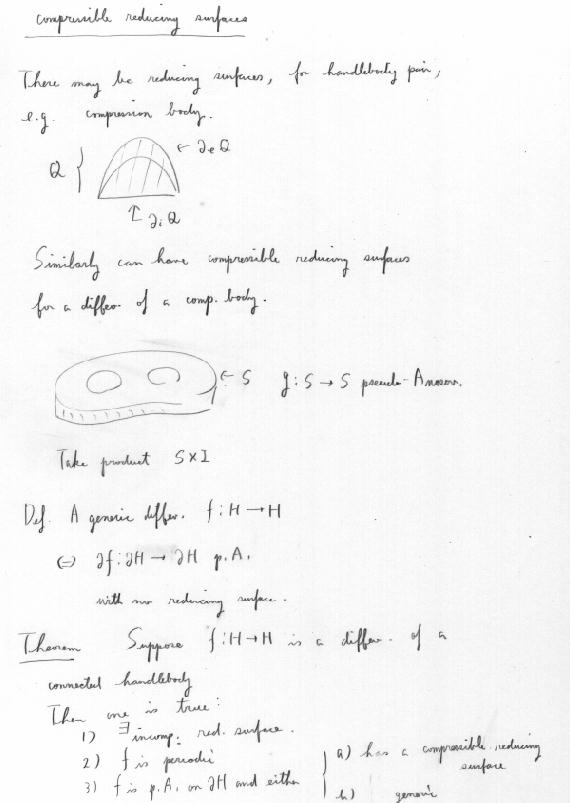 compressible reducing surfaces
There may be reducing surfaces, for handlebody pair,
e.g. compression body.
Q { ← ∂e Q
↑ ∂i Q
Similarly can have compressible reducing surfaces
for a diffeo. of a comp. body.
← S g : S → S pseudo-Anosov.
Take product S×I
Def. A generic diffeo. f : H → H
(=) ∂f : ∂H → ∂H p.A.
with no reducing surface.
Theorem Suppose f : H → H is a diffeo. of a
connected handlebody
Then one is true:
1) ∃ incomp. red. surface.
2) f is periodic
3) f is p.A. on ∂H and either
a) has a compressible reducing
surface
b) generic